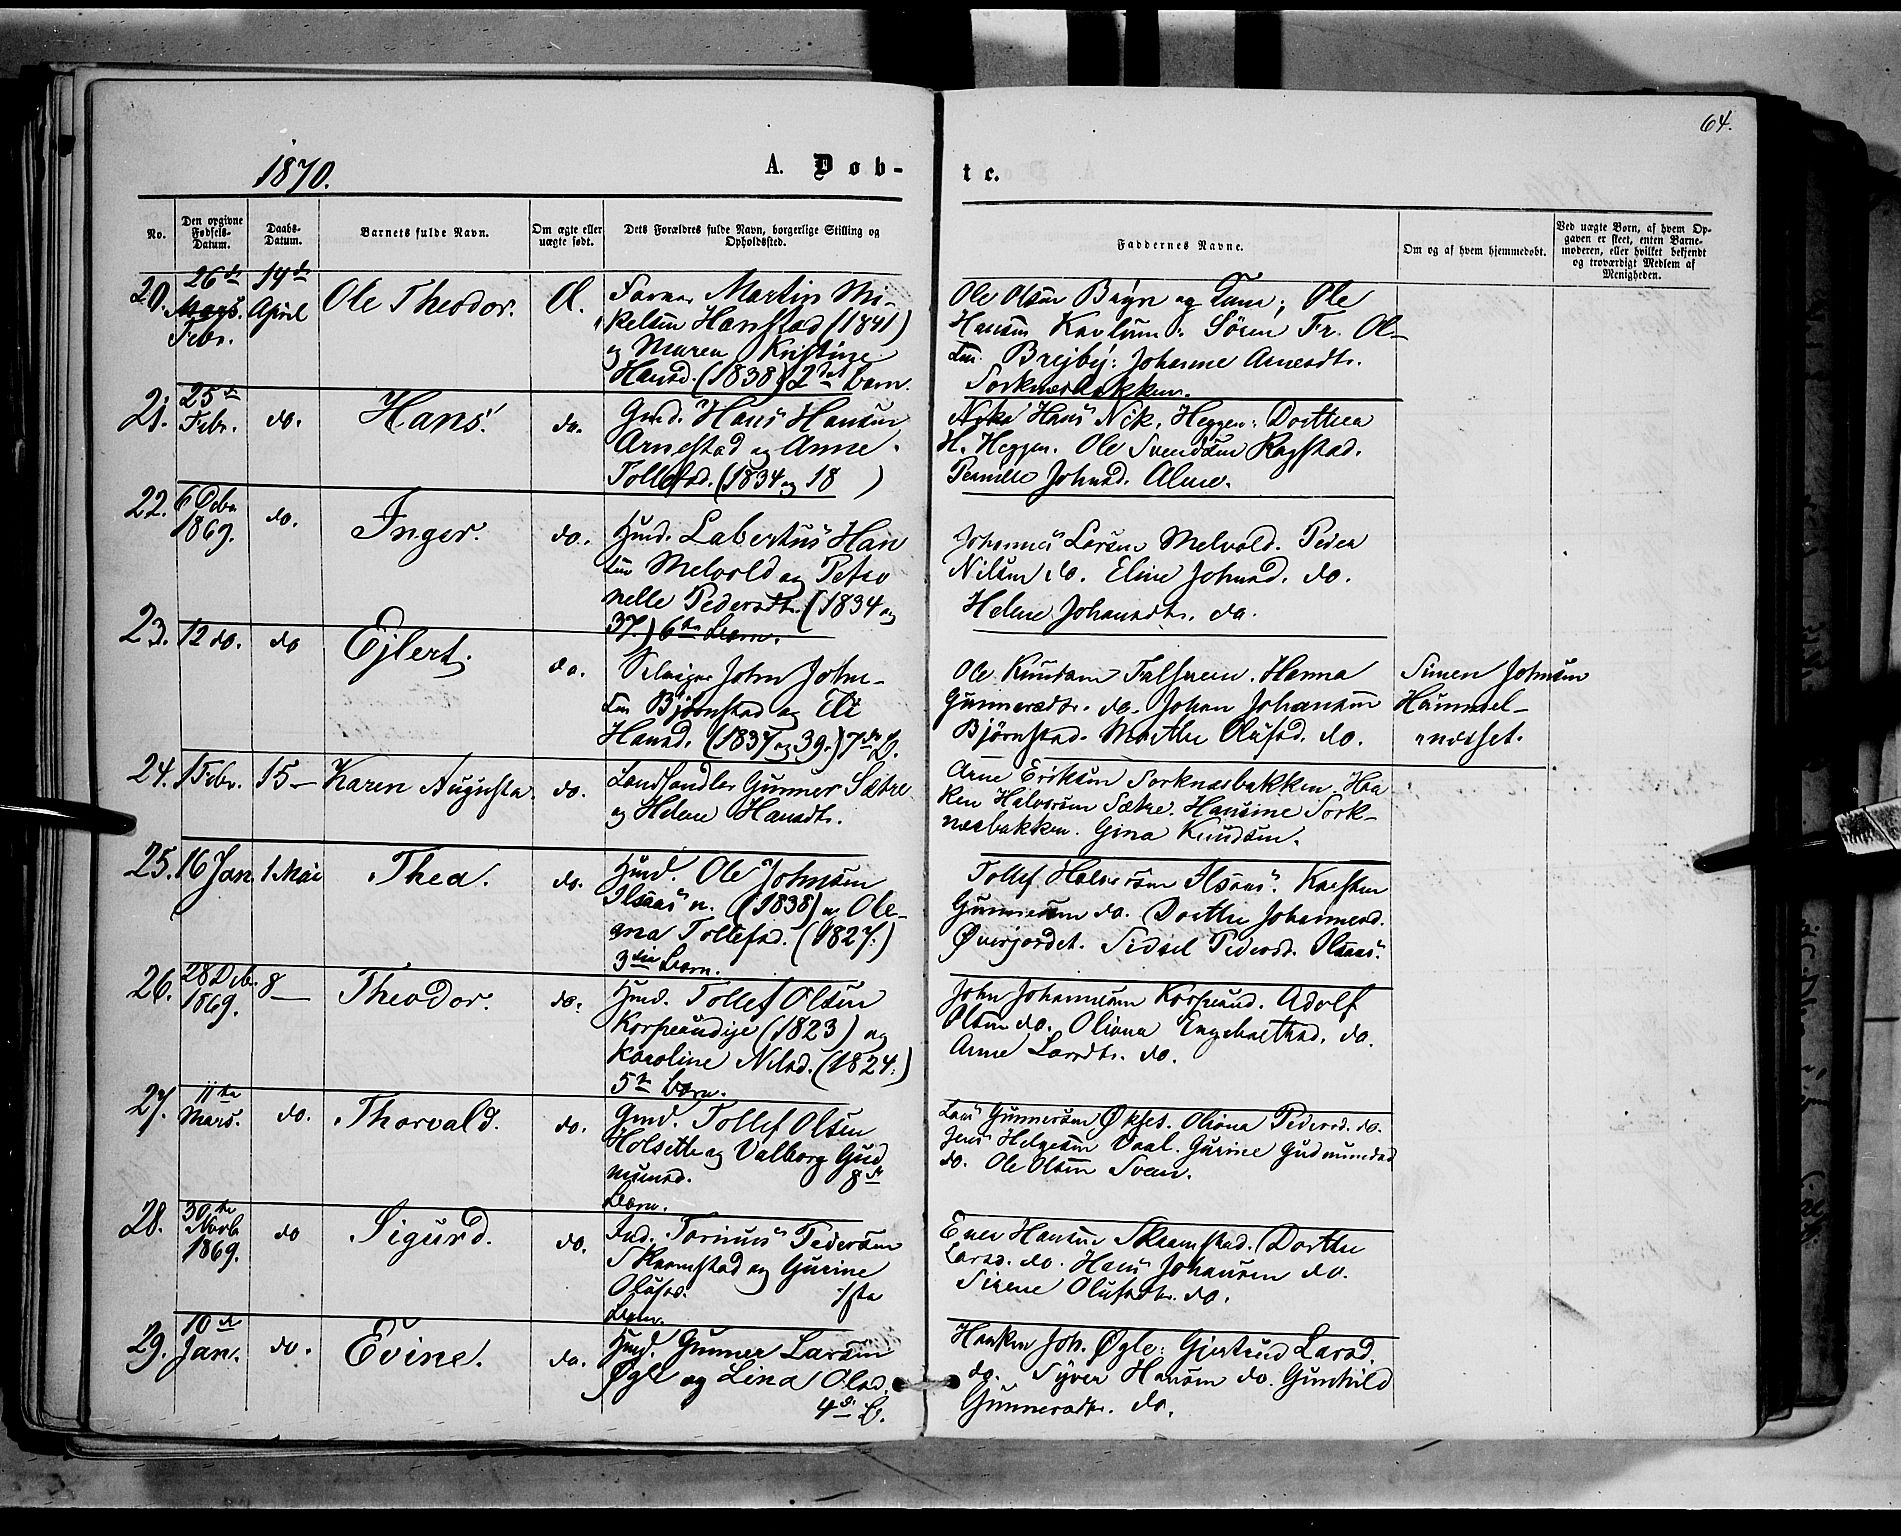 64.
1870.
A. Døb-
te.
No.
Den opgivne Fødsels-Datum.
Daabs-Datum.
Barnets fulde Navn.
Om ægte eller uægte født.
Dets Forældres fulde Navn, borgerlige Stilling og Opholdssted.
Faddernes Navne.
Om og af hvem hjemmedøbt.
Ved uægte Børn, af hvem Opgaven er skeet, enten Barnemoderen, eller hvilket bekjendt og troværdigt Medlem af Menigheden.
20. 26de Febr. 14de April Ole Theodor.
Martin Mi-
kelsen Hanstad (1841)
og Maren Kristine
Hansd. (1838) 2det Barn.
Ole Olsen Bryn og Ole
Hansen Søren Fr. Ol-
sen Brejby: Johanne Arnesdtr.
Sorknæsbakken.
21. 25de Febr. do. Hans. do.
Gmd. Hans Hansen
Arnestad og Anne
Tollefsd. (1834 og 18 )
Hans Nik. Heggen: Dorthea
H. Heggen. Ole Svendsen Ragstad.
Pernille Johnsd. Alme.
22. 6 Debr. 1869. do. Inger. do.
Hmd. Labertus Han
sen Melvold og Petro
nelle Pedersdtr. (1834 og
37.) 6te Barn.
Johannes Larsen Melvold. Peder
Nilsen do. Eline Johnsd. do.
Helene Johansdtr. do.
23. 12 do. do Ejlert. do.
Selveier John John-
sen Bjørnstad og Eli
Hansd. (1837 og 39.) 7de B.
Ole Knudsen Hanna
Gunnersdtr. do. Johan Johansen
Bjørnstad. Marthe Olufsd. do.
Simen Johnsen
Hammel-
næsset.
24. 1 Febr. 15 – Karen Augusta. do.
Landhandler Gunner Sætre
og Helene Hansdtr.
Arne Eriksen Sorknæsbakken. Haa
ken Halvorsen Sætre. Hansine Sork-
næsbakken. Gina Knudsen.
25. 16 Jan. 1 Mai Thea. do.
Hmd. Ole Johnsen
Ilsaas n. (1838) og Ole-
ana Tollefsd. (1827.)
3die Barn.
Tollef Halvorsen Ilsaas. Karsten
Gunnersen do. Dorthe Johannesd.
Øverjordet. Sidsel Pedersd. Ilsaas.
26. 28 Deb. 1869. 8 – Theodor. do.
Hmd. Tollef Olsen
(1823) og
Karoline Nilsd. (1824.)
5te Barn.
John Johannesen Adolf
Olsen do. Oliana Engebrethsd. do.
Anne Larsdtr. do.
27. 11te Mars. do. Thorvald. do.
Gmd. Tollef Olsen
Holseth og Valborg Gud
mundsd. 8de
Barn.
Lars Gunnersen Økset. Oliana Pedersd. do.
Jens Helgesen Vaal. Gurine Gudmundsd
do. Ole Olsen Sveen.
28. 30te Novb. 1869. do Sigurd. do.
Ind. Tarinus Pedersen
Skramstad og Gurine
Olufsd. 1ste
Barn.
Even Hansen Skramstad. Dorthe
Larsd. do. Hans Johansen do.
Sirene Olufsdtr. do.
29. 10de Jan. do. Evine. do.
Hmd. Gunner Larsen
Øgle og Lina Olsd.
4de B.
Haaken Joh. Øgle: Gjertrud Larsd.
do. Syver Hansen do. Gunhild
Gunnersdtr. do.